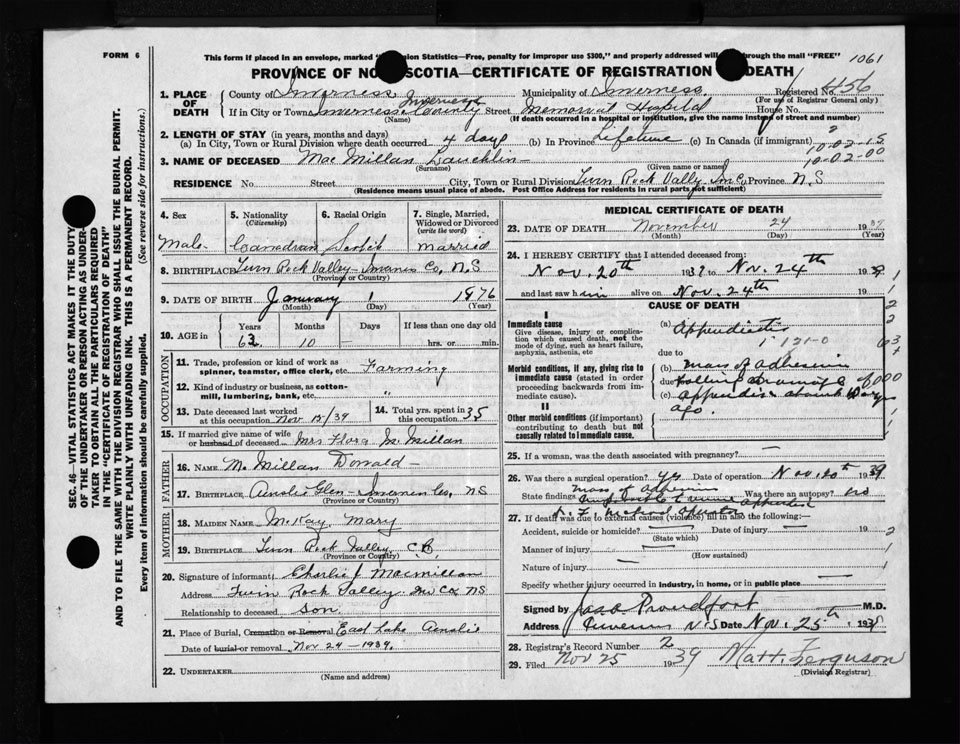 FORM 6
This form if placed in an envelope, marked "Dominion Statistics—Free, penalty for improper use $300," and properly addressed will go through the mail "FREE"
1061
PROVINCE OF NOVA SCOTIA—CERTIFICATE OF REGISTRATION OF DEATH
1. PLACE OF DEATH County of Inverness Municipality of Inverness Registered No. 4456
(For use of Registrar General only)
If in City or Town Inverness Inverness County Street Memorial Hospital House No.
(Name) (If death occurred in a hospital or institution, give the name instead of street and number)
2. LENGTH OF STAY (in years, months and days)
(a) In City, Town or Rural Division where death occurred 4 days (b) In Province Lifetime (c) In Canada (if immigrant)
2
10-02-15
10-02-00
3. NAME OF DECEASED Mac Millan Lauchlin
(Surname) (Given name or names)
RESIDENCE No. Street City, Town or Rural Division Twin Rock Vally Inv C, Province N.S
(Residence means usual place of abode. Post Office Address for residents in rural parts not sufficient)
4. Sex Male
5. Nationality (Citizenship) Canadian
6. Racial Origin Scotch
7. Single, Married, Widowed or Divorced (write the word) married
8. BIRTHPLACE Twin Rock Valley - Inverness Co, N.S
(Province or Country)
9. DATE OF BIRTH January 1 1876
(Month) (Day) (Year)
10. AGE in Years 63 Months 10 Days If less than one day old hrs. or min.
OCCUPATION
11. Trade, profession or kind of work as spinner, teamster, office clerk, etc. Farming
12. Kind of industry or business, as cotton-mill, lumbering, bank, etc.
13. Date deceased last worked at this occupation Nov 15/39
14. Total yrs. spent in this occupation 35
15. If married give name of wife or husband of deceased Mrs Flora McMillan
FATHER
16. NAME McMillan Donald
17. BIRTHPLACE Ainslie Glen - Inverness Co, NS
(Province or Country)
MOTHER
18. MAIDEN NAME McKay, Mary
19. BIRTHPLACE Twin Rock Valley, C.B.
(Province or Country)
20. Signature of informant Charlie J Macmillan
Address Twin Rock Valley Inv Co, NS
Relationship to deceased Son
21. Place of Burial, Cremation or Removal East Lake Ainslie
Date of burial or removal Nov 24 - 1939.
22. UNDERTAKER
(Name and address)
MEDICAL CERTIFICATE OF DEATH
23. DATE OF DEATH November 24 1939
(Month) (Day) (Year)
24. I HEREBY CERTIFY that I attended deceased from:
Nov. 20th 1939 to Nov. 24th 1939
and last saw him alive on Nov. 24th 19
CAUSE OF DEATH
I
Immediate cause
Give disease, injury or complication which caused death, not the mode of dying, such as heart failure, asphyxia, asthenia, etc
(a) Appendicitis
1 121-0
due to
Morbid conditions, if any, giving rise to immediate cause (stated in order proceeding backwards from immediate cause).
(b) mass of adhesions
due to following drainage of
(c) appendix about 10 yrs
ago.
II
Other morbid conditions (if important) contributing to death but not causally related to immediate cause.
25. If a woman, was the death associated with pregnancy?
26. Was there a surgical operation? yes Date of operation Nov. 20th 1939
State findings mass of adhesions Was there an autopsy? no
27. If death was due to external causes (violence) fill in also the following:—
Accident, suicide or homicide? Date of injury 19
(State which)
Manner of injury
(How sustained)
Nature of injury
Specify whether injury occurred in industry, in home, or in public place
Signed by Jas. Proudfoot M.D.
Address Inverness N.S Date Nov. 25th 1939
28. Registrar's Record Number 2
29. Filed Nov 25 1939 Matt. Ferguson
(Division Registrar)
SEC. 46—VITAL STATISTICS ACT MAKES IT THE DUTY
OF THE UNDERTAKER OR PERSON ACTING AS UNDERTAKER TO OBTAIN ALL THE PARTICULARS REQUIRED
IN THE "CERTIFICATE OF REGISTRATION OF DEATH"
AND TO FILE THE SAME WITH THE DIVISION REGISTRAR WHO SHALL ISSUE THE BURIAL PERMIT.
WRITE PLAINLY WITH UNFADING INK. THIS IS A PERMANENT RECORD.
Every item of information should be carefully supplied. (See reverse side for instructions.)